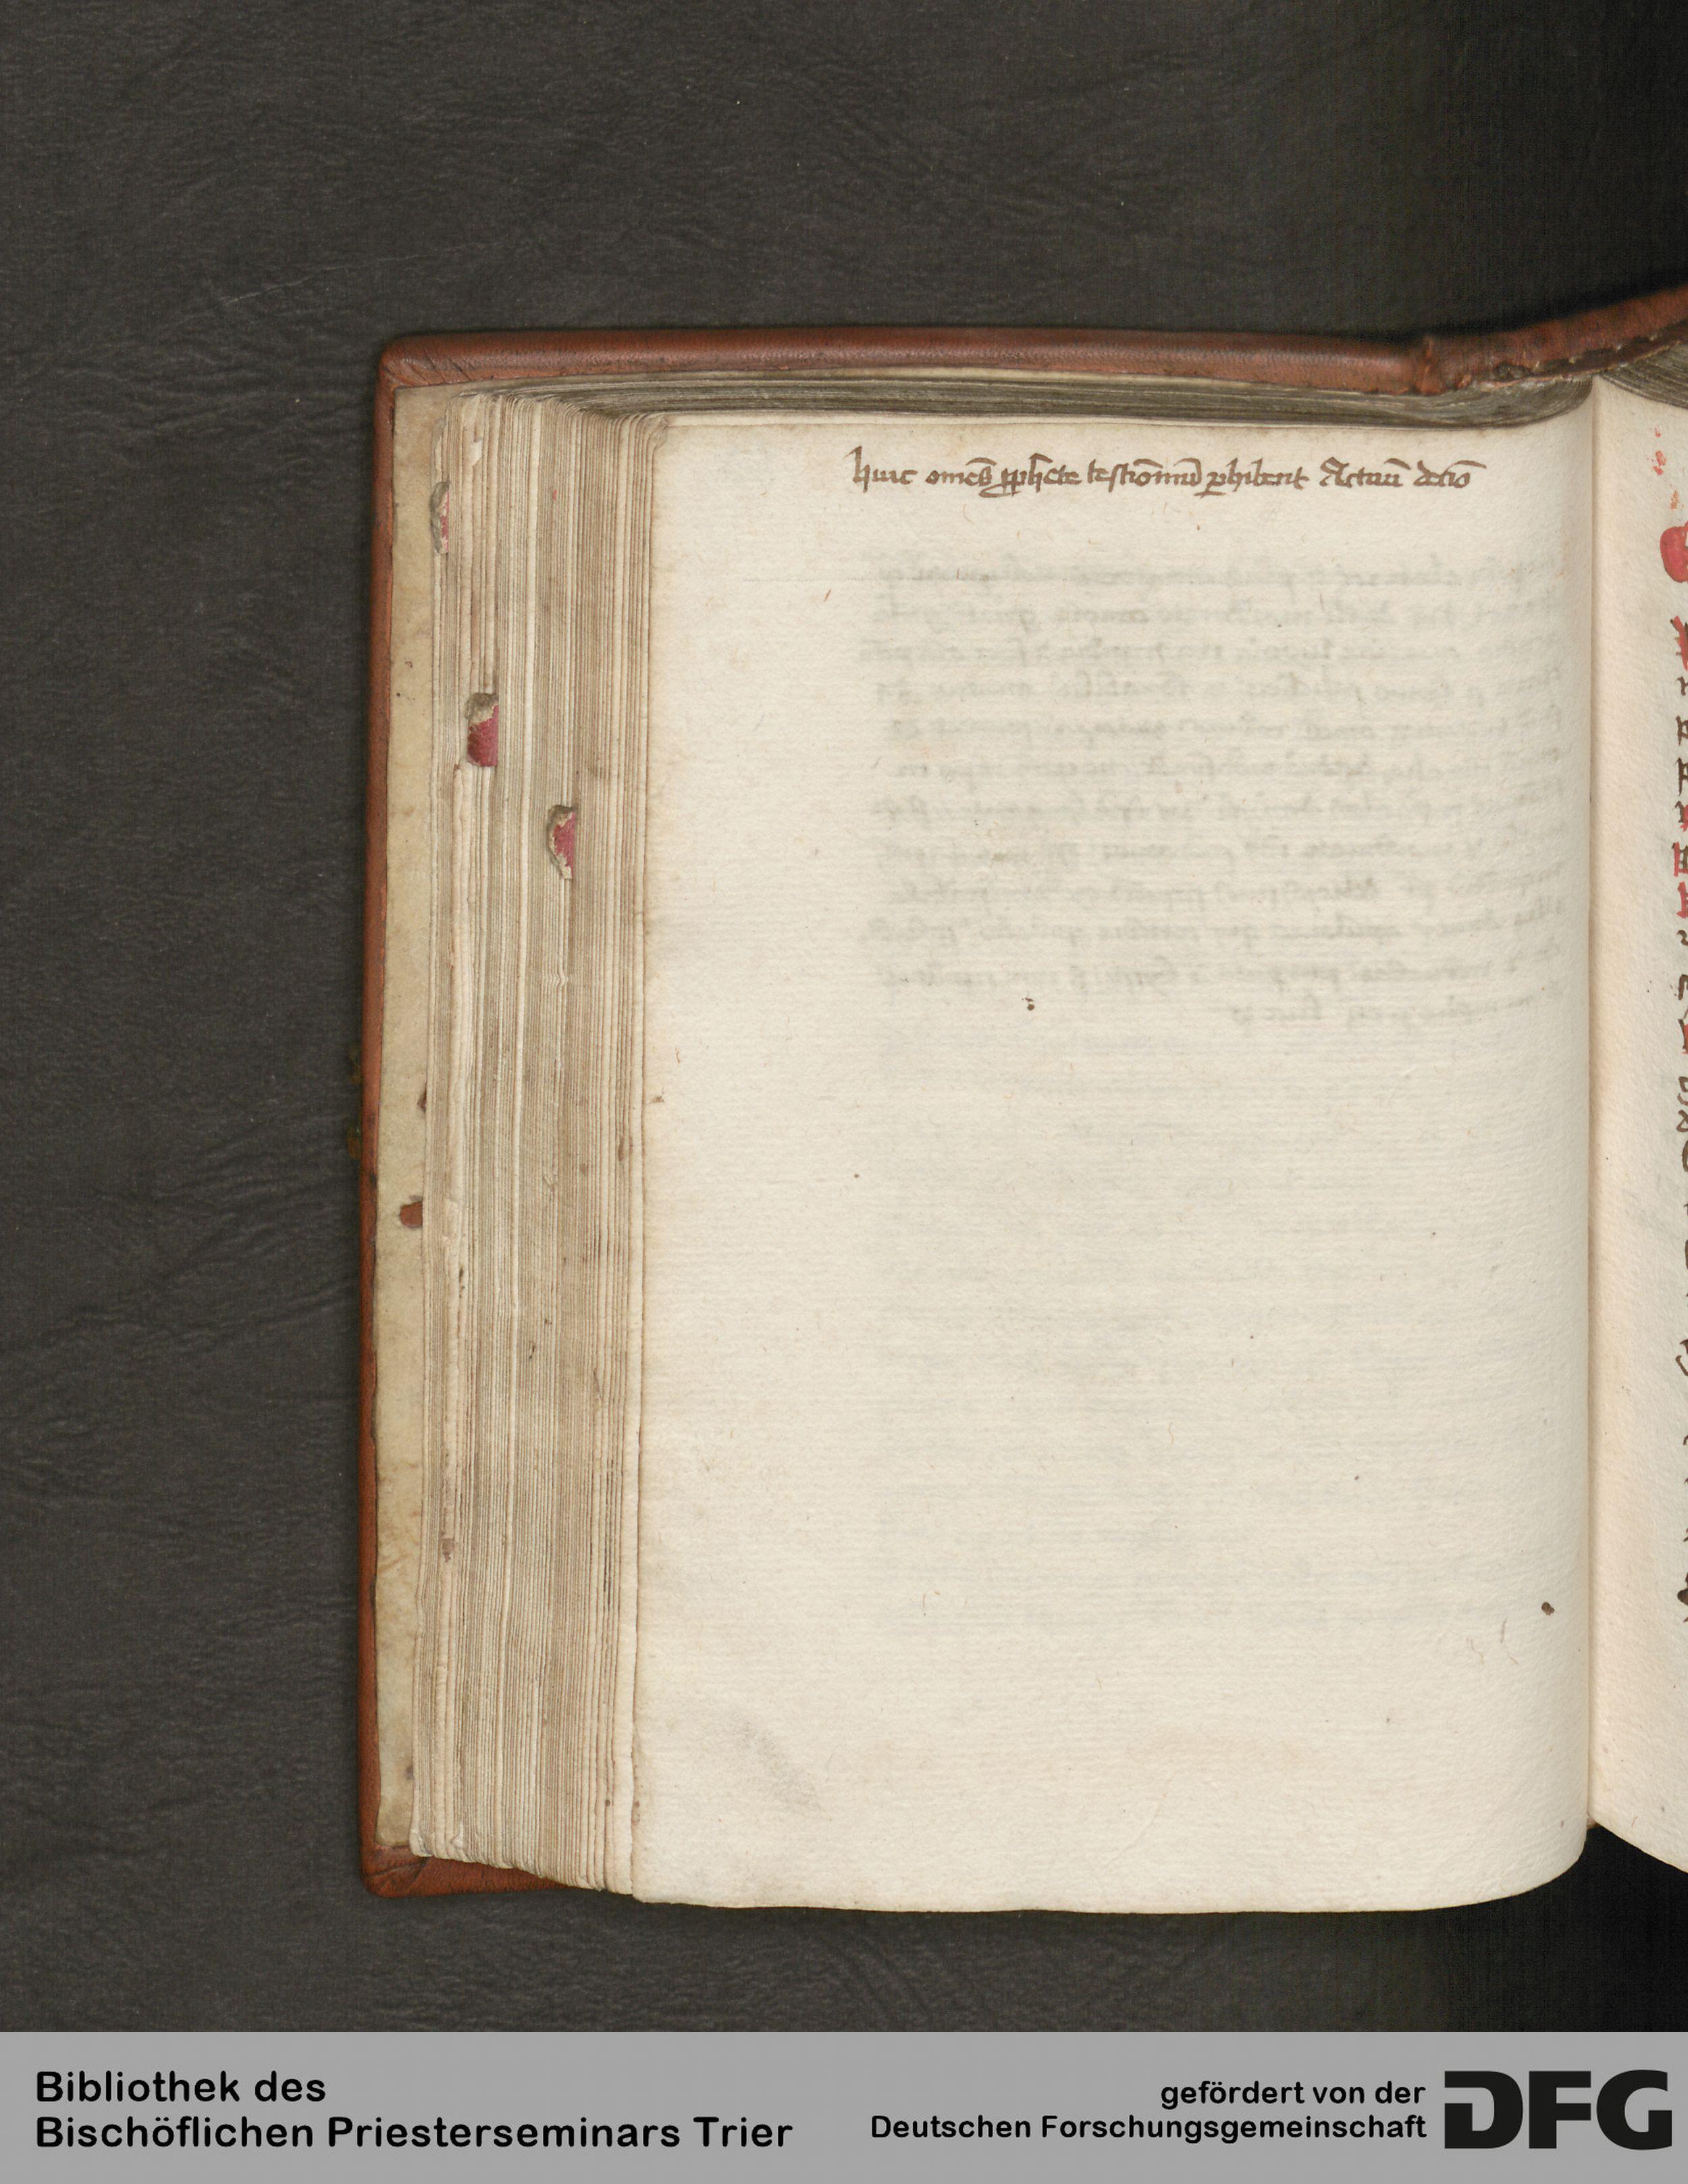 huic om̅es ꝓph̅ete testio̅nui̅u̅ ꝑhibent Actuu̅ decio̅
Bibliothek des
Bischöflichen Priesterseminars Trier
gefördert von der
Deutschen Forschungsgemeinschaft
DFG